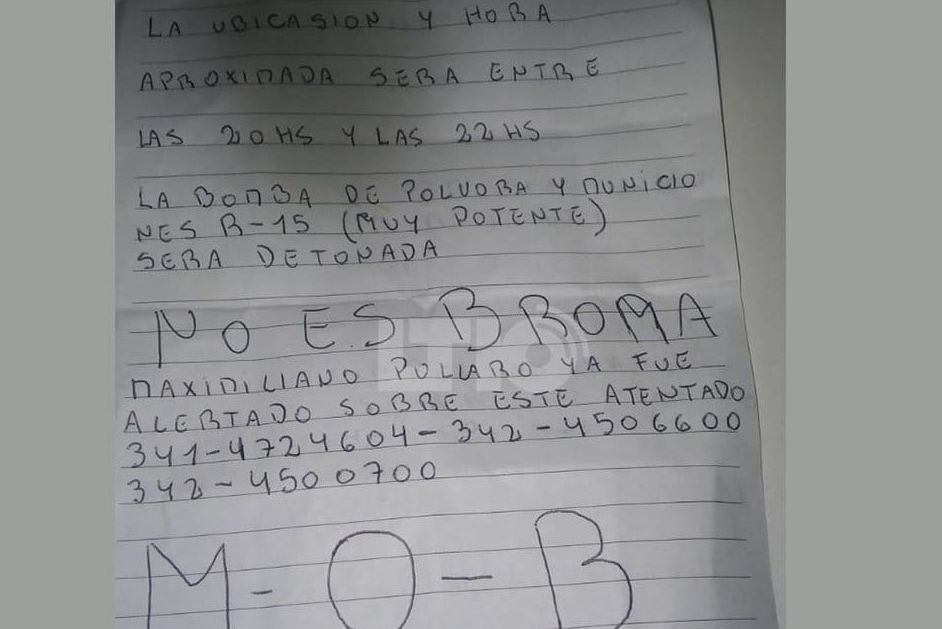 LA UBICASION Y HORA
APROXIMADA SERA ENTRE
LAS 20 HS Y LAS 22 HS
LA BOMBA DE POLVORA Y MUNICIO
NES R-15 (MUY POTENTE)
SERA DETONADA
NO ES BROMA
MAXIMILIANO PULLARO YA FUE
ALERTADO SOBRE ESTE ATENTADO
341-4724604-342-4506600
342-4500700
M-O-B
LT10